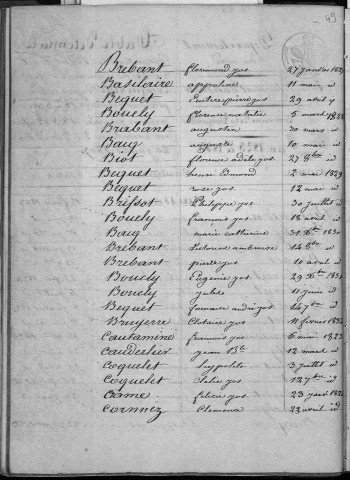 49
Brebant florimond jos 27 janvier 182
Basilaire appoline 11 mai id
Bequet pierre jos 29 avril
Bouely florence natalie 5 mars 182
Brabant augustin 30 mars id
Baug auguste 10 mai id
Biot florence adèle jos 27 8bre id
Bequet henri Edmond 2 mai 1829
Bequet rose jos 12 mai id
Brissot Philippe jos 30 juillet id
Bouely francois jos 18 août id
Baug marie catherine 31 Xbre 1830
Brébant Victorine ambroise 14 8bre id
Brebant pierre jos 10 août id
Bouely Eugénie jos 29 Xbre 183
Bouely Jules 11 juin id
Bequet jos 14 7bre id
Bruyerre Clotaire jos 11 fevrier 1832
Cautamine francois jos 6 mai 1823
Caudrelier Jean Bte 12 mars id
Coquelet hyppolite 3 juillet id
Coquelet Clelie jos 12 7bre id
Came felicie jos 23 182
Cornnez Clemence 23 avril id